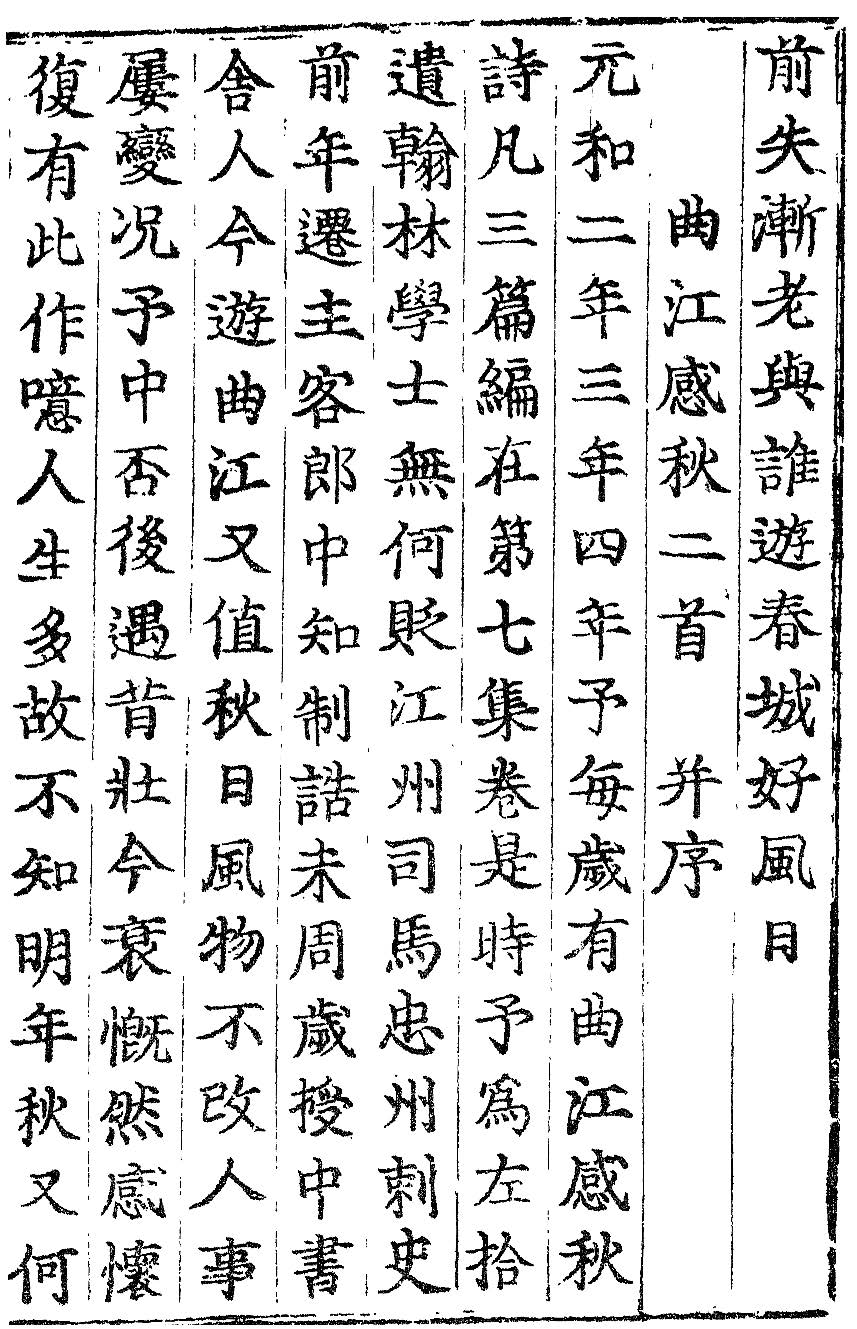 前失漸老與誰遊春城好風日
曲江感秋二首　并序
元和二年三年四年予每歲有曲江感秋
詩凡三篇編在第七集卷是時予爲左拾
遺翰林學士無何貶江州司馬忠州刺史
前年遷主客郎中知制誥未周歲授中書
舍人今遊曲江又值秋日風物不改人事
屢變况予中否後遇昔壯今衰慨然感懷
復有此作噫人生多故不知明年秋又何